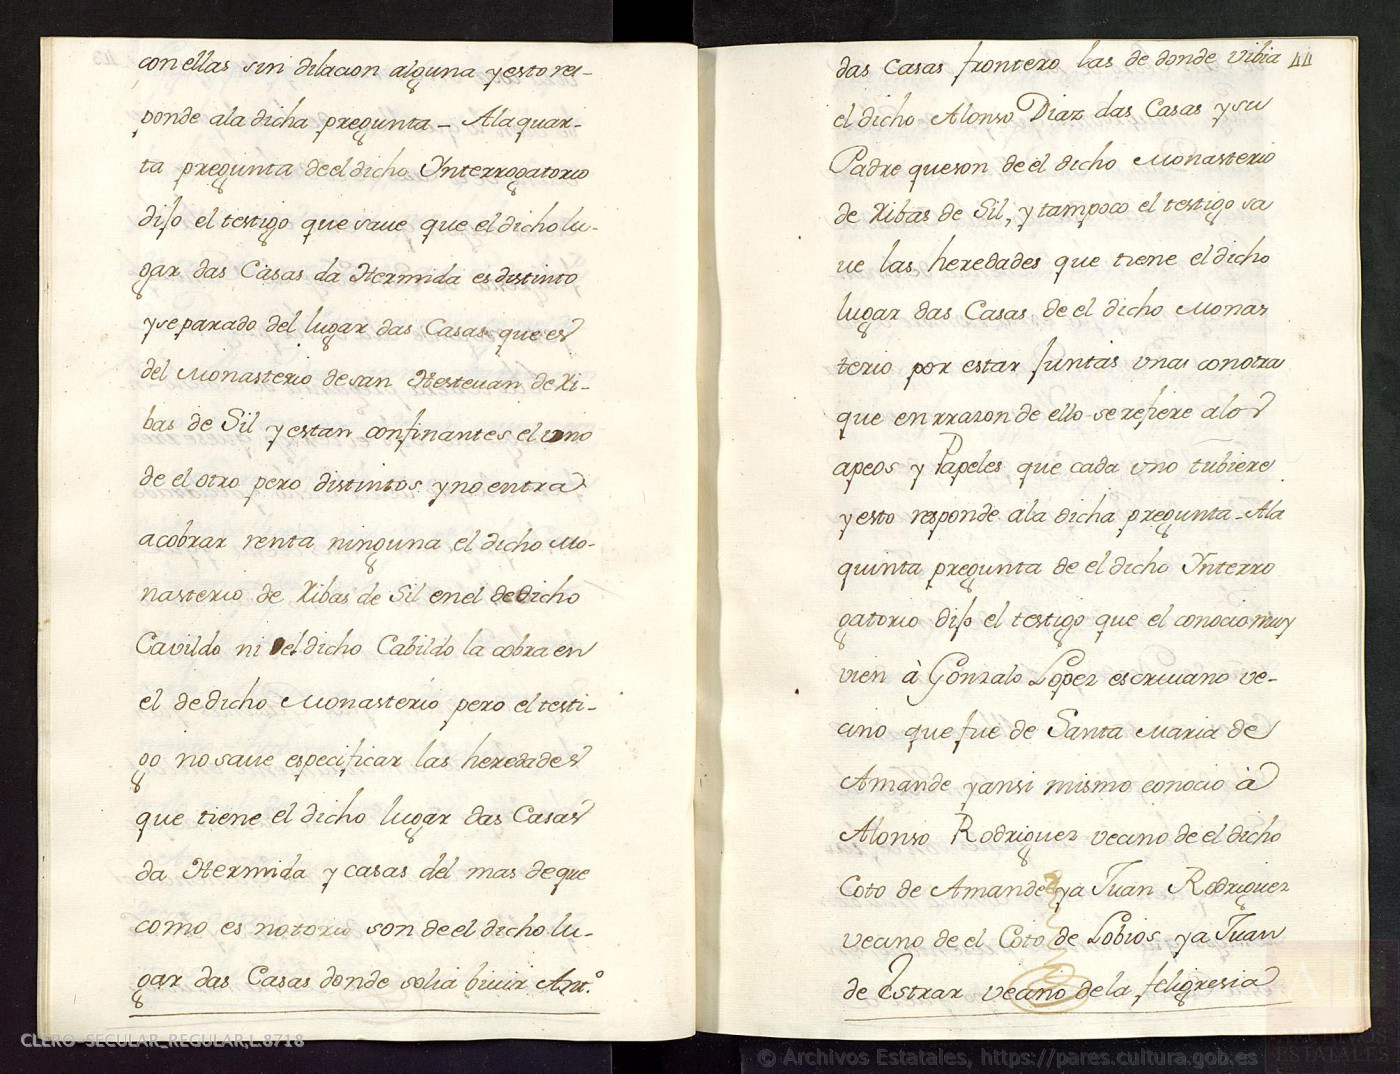 con ellas sin dilacion alguna y esto res-
ponde ala dicha pregunta - Ala quar-
ta pregunta de el dicho Ynterrogatorio
dijo el testigo que saue que el dicho lu-
gar das Casas da Hermida es distinto
y separado del lugar das Casas que es
del Monasterio de san Hesteuan de Ri-
bas de Sil y estan confinantes el uno
de el otro pero distintos y no entra
a cobrar renta ninguna el dicho Mo-
nasterio de Ribas de Sil en el de dicho
Cavildo ni el dicho Cabildo la cobra en
el de dicho Monasterio pero el testi-
go no saue especificar las heredades
que tiene el dicho lugar das Casas
da Hermida y casas del mas de que
como es notorio son de el dicho lu-
gar das Casas donde solia biuir Ant.º
das Casas frontero las de donde vibia 44
el dicho Alonso Diaz das Casas y su
Padre que son de el dicho Monasterio
de Ribas de Sil, y tampoco el testigo sa
ue las heredades que tiene el dicho
lugar das Casas de el dicho Monas
terio por estar juntas unas con otra
que en rrazon de ello se refiere a los
apeos y Papeles que cada uno tubiere
y esto responde ala dicha pregunta - Ala
quinta pregunta de el dicho Ynterro
gatorio dijo el testigo que el conocio muy
vien à Gonzalo Lopez escriuano ve-
cino que fue de Santa Maria de
Amande y ansi mismo conocio à
Alonso Rodriguez vecino de el dicho
Coto de Amande y a Juan Rodriguez
vecino de el Coto de Lobios y a Juan
de Estrar vecino de la feligresia
CLERO-SECULAR_REGULAR,L.8718
© Archivos Estatales, https://pares.cultura.gob.es
ARCHIVOS
ESTATALES